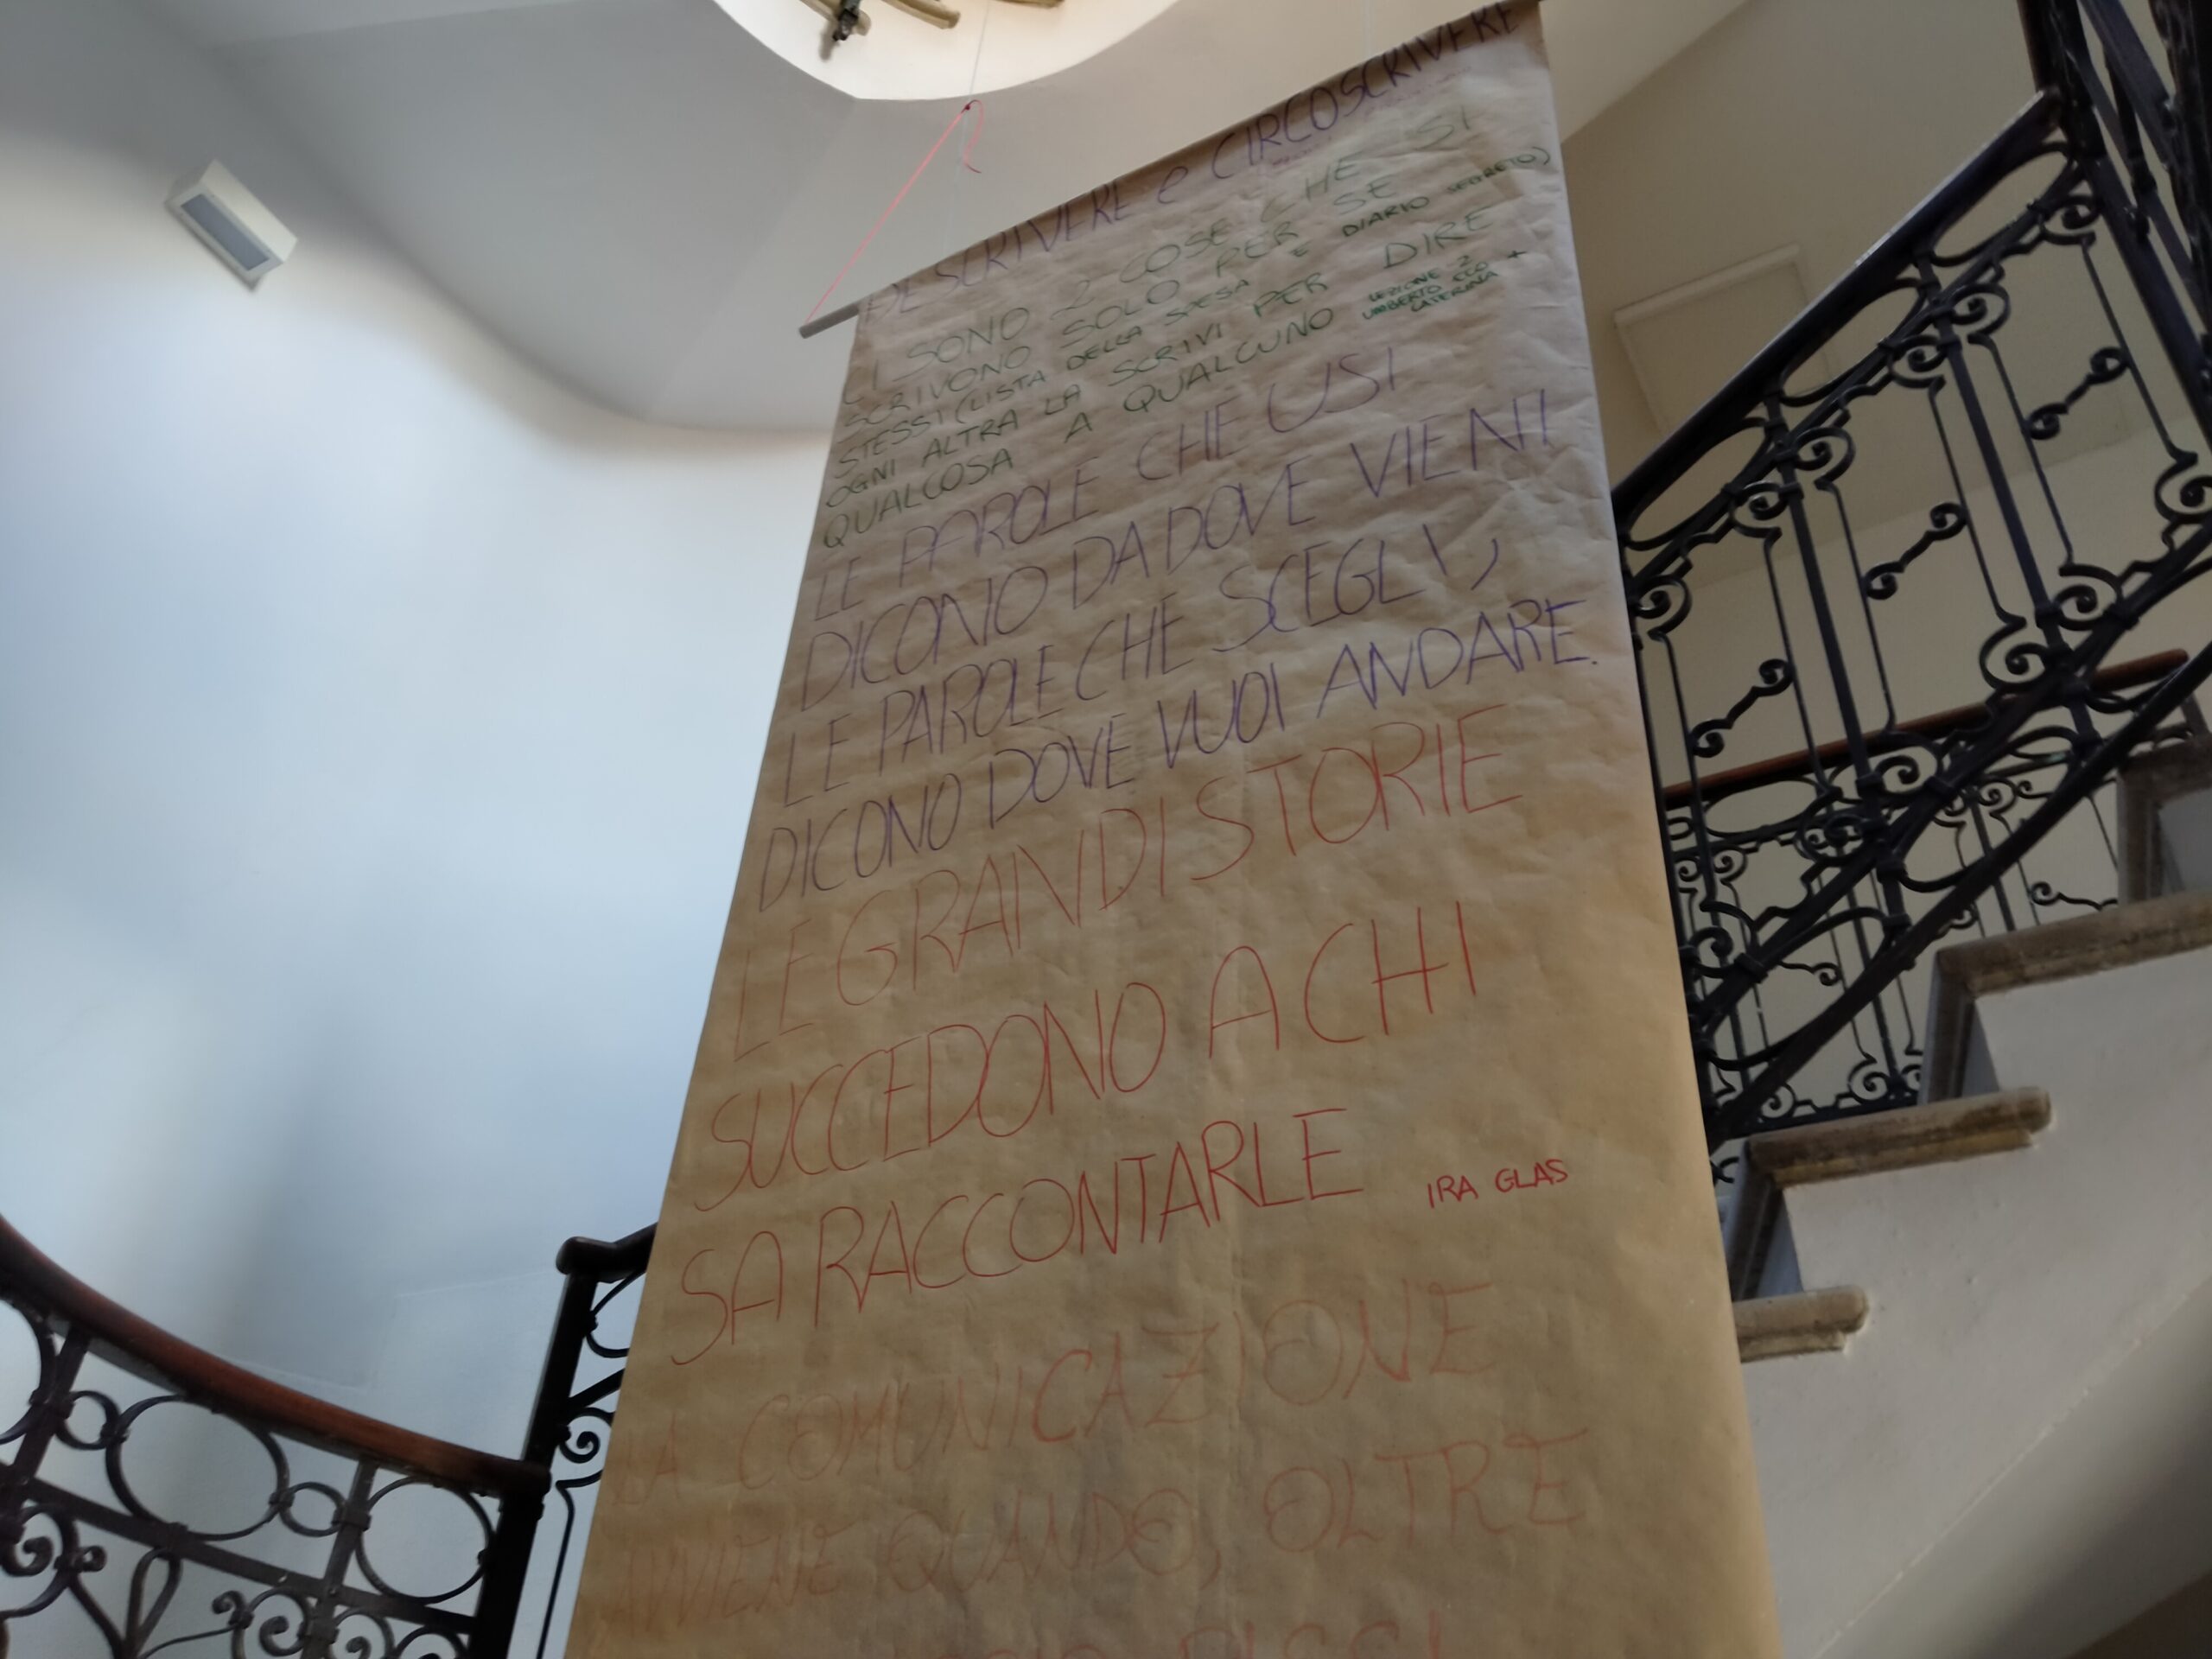 DESCRIVERE e CIRCOSCRIVERE
CI SONO 2 COSE CHE SI
SCRIVONO SOLO PER SE
STESSI (LISTA DELLA SPESA E DIARIO SEGRETO)
OGNI ALTRA LA SCRIVI PER DIRE
QUALCOSA A QUALCUNO
LEZIONE 2
UMBERTO ECO +
LATERINA
LE PAROLE CHE USI
DICONO DA DOVE VIENI
LE PAROLE CHE SCEGLI,
DICONO DOVE VUOI ANDARE.
LE GRANDI STORIE
SUCCEDONO A CHI
SA RACCONTARLE
IRA GLAS
LA COMUNICAZIONE
AVVIENE QUANDO, OLTRE